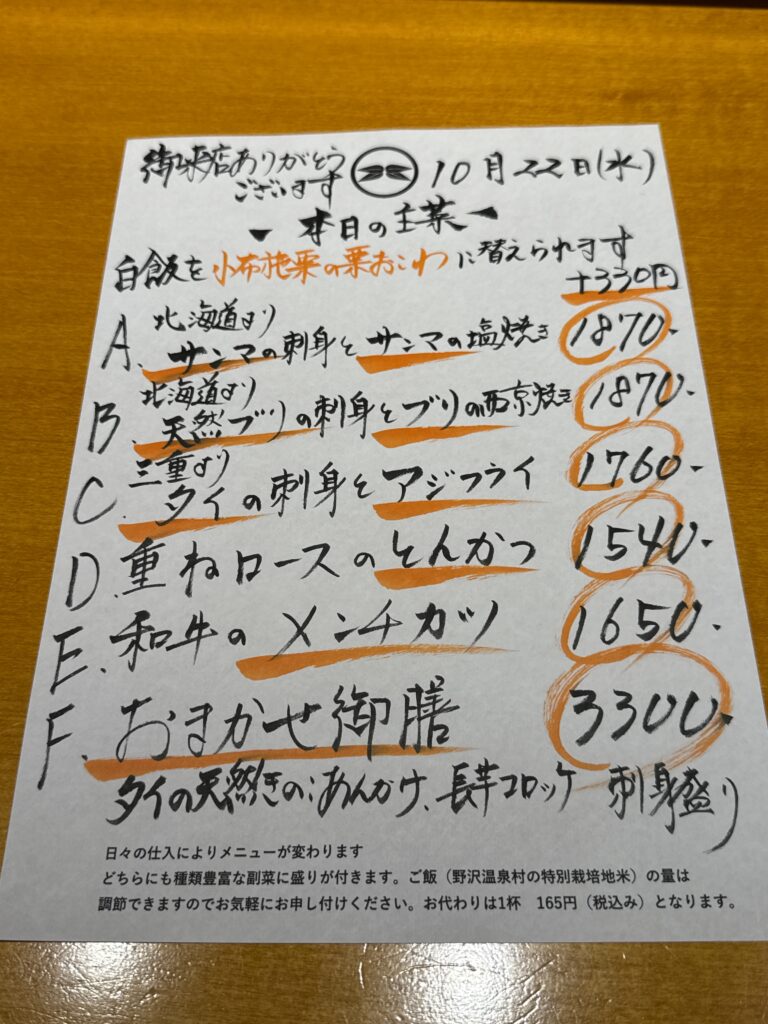 御来店ありがとう
ございます
10月22日(水)
本日の主菜
白飯を小布施栗の栗おこわに替えられます
+330円
北海道より
A. サンマの刺身とサンマの塩焼き 1870-
北海道より
B. 天然ブリの刺身とブリの西京焼き 1870-
三重より
C. タイの刺身とアジフライ 1760-
D. 重ねロースのとんかつ 1540-
E. 和牛のメンチカツ 1650-
F. おまかせ御膳 3300-
タイの天然きのこあんかけ、長芋コロッケ 刺身盛り
日々の仕入によりメニューが変わります
どちらにも種類豊富な副菜に盛りが付きます。ご飯（野沢温泉村の特別栽培地米）の量は
調節できますのでお気軽にお申し付けください。お代わりは1杯　165円（税込み）となります。